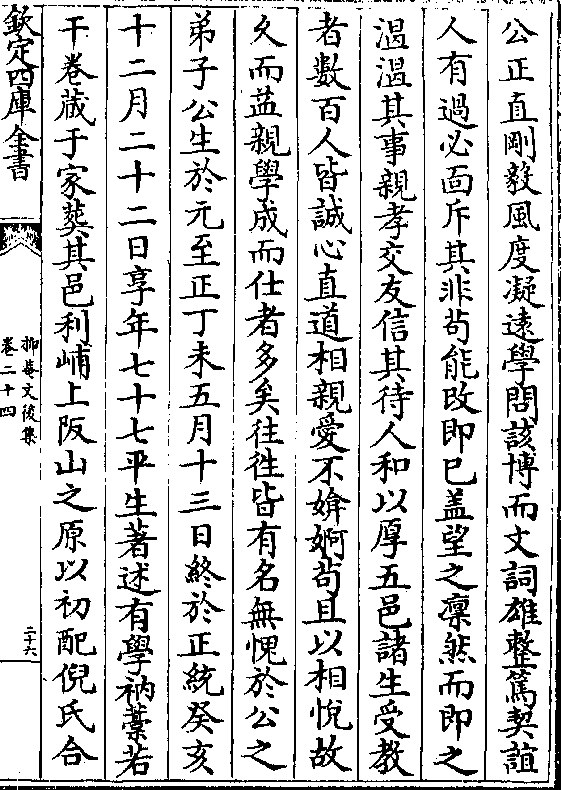 公正直剛毅風度凝遠學問該博而文詞雄整篤契誼
人有過必面斥其非茍能改即已盖望之凛然而即之
温温其事親孝交友信其待人和以厚五邑諸生受教
者數百人皆誠心直道相親愛不媕婀茍且以相悅故
久而益親學成而仕者多矣往徃皆有名無愧於公之
弟子公生於元至正丁未五月十三日終於正統癸亥
十二月二十二日享年七十七平生著述有學衲藁若
干卷蔵于家葬其邑利峬上阪山之原以初配倪氏合
欽定四庫全書
抑菴文後集
卷二十四
二十六